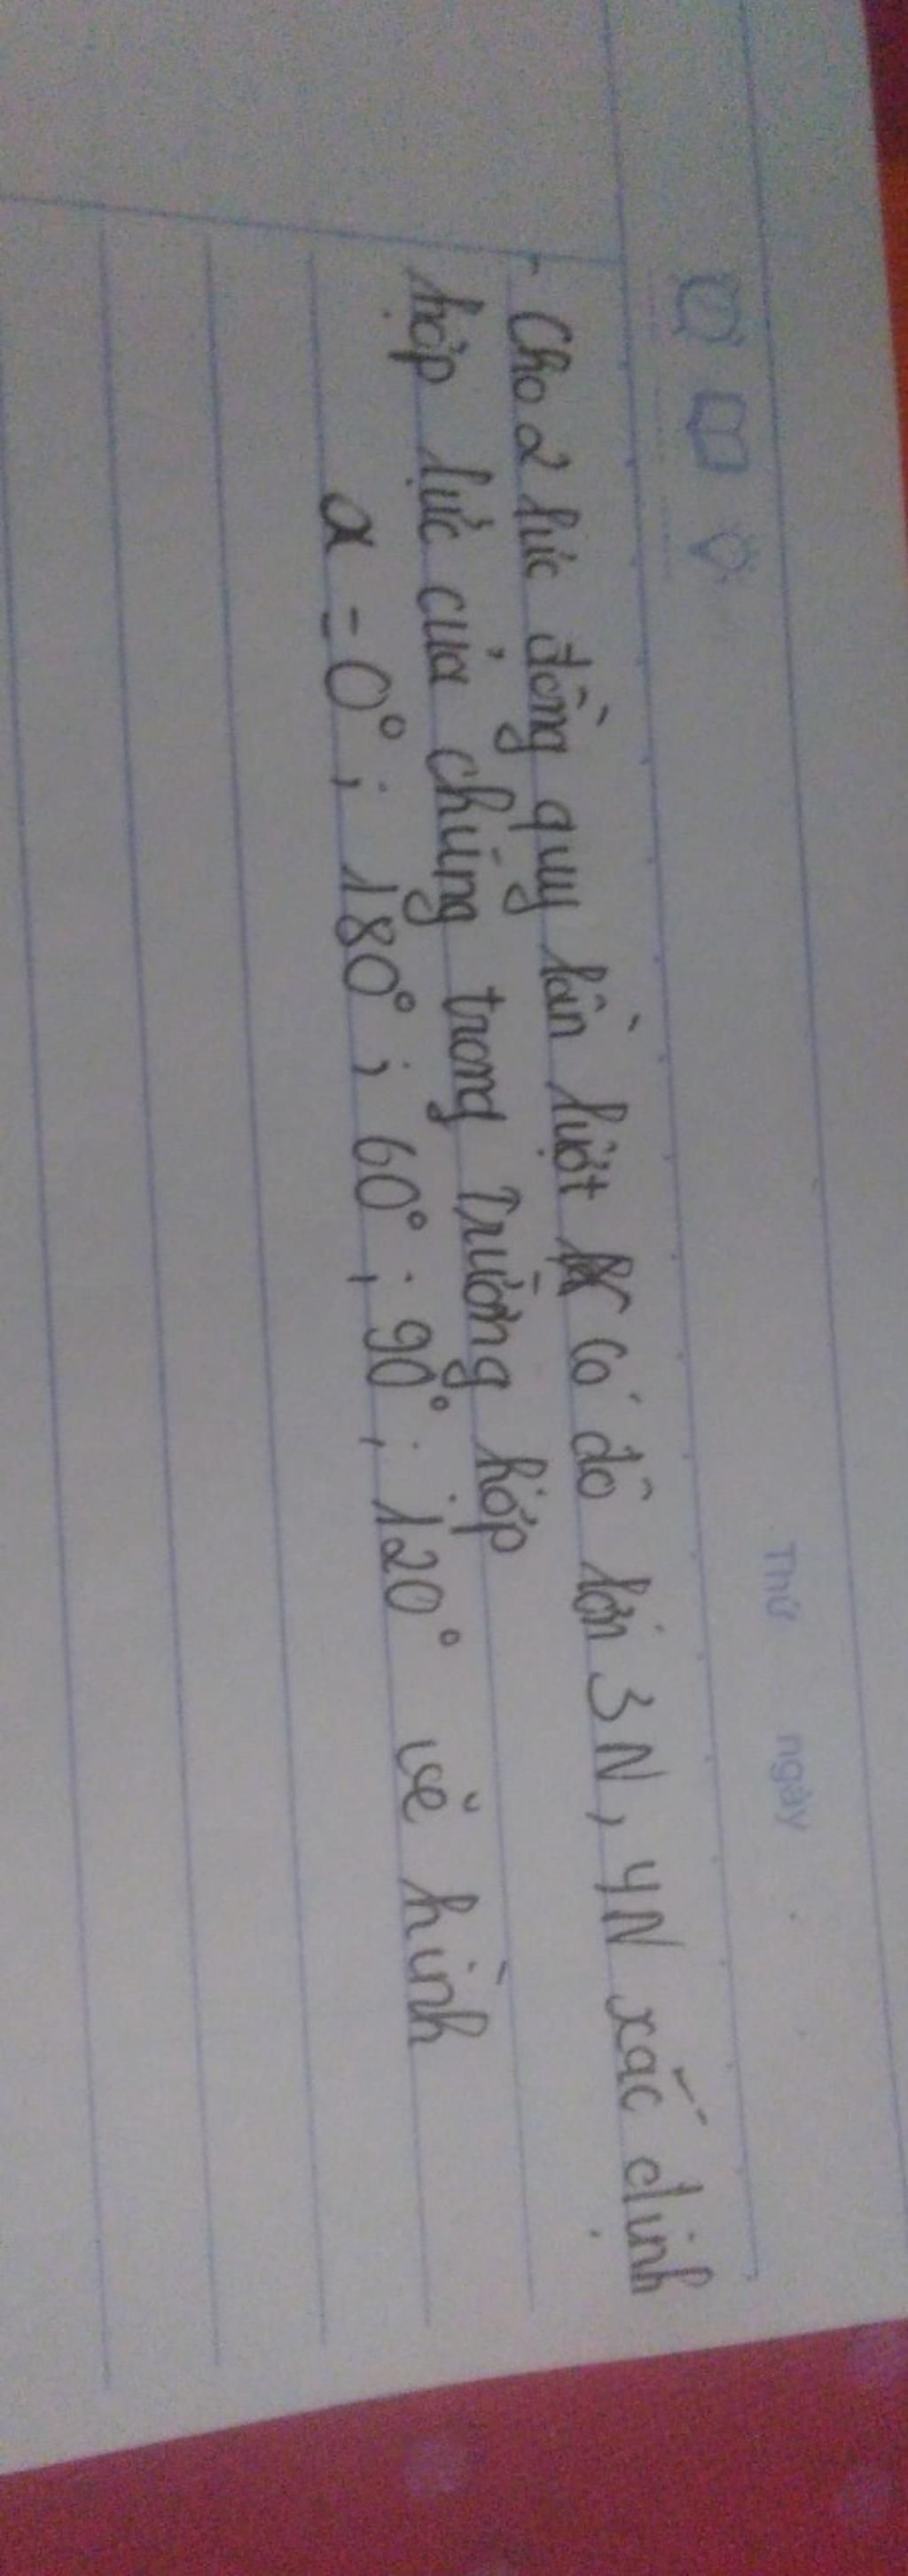 Thứ ngày
- Cho 2 lực đồng quy lần lượt có độ lớn 3N, 4N xác định
hợp lực của chúng trong Trường hợp
α = 0°; 180°; 60°; 90°; 120° vẽ hình